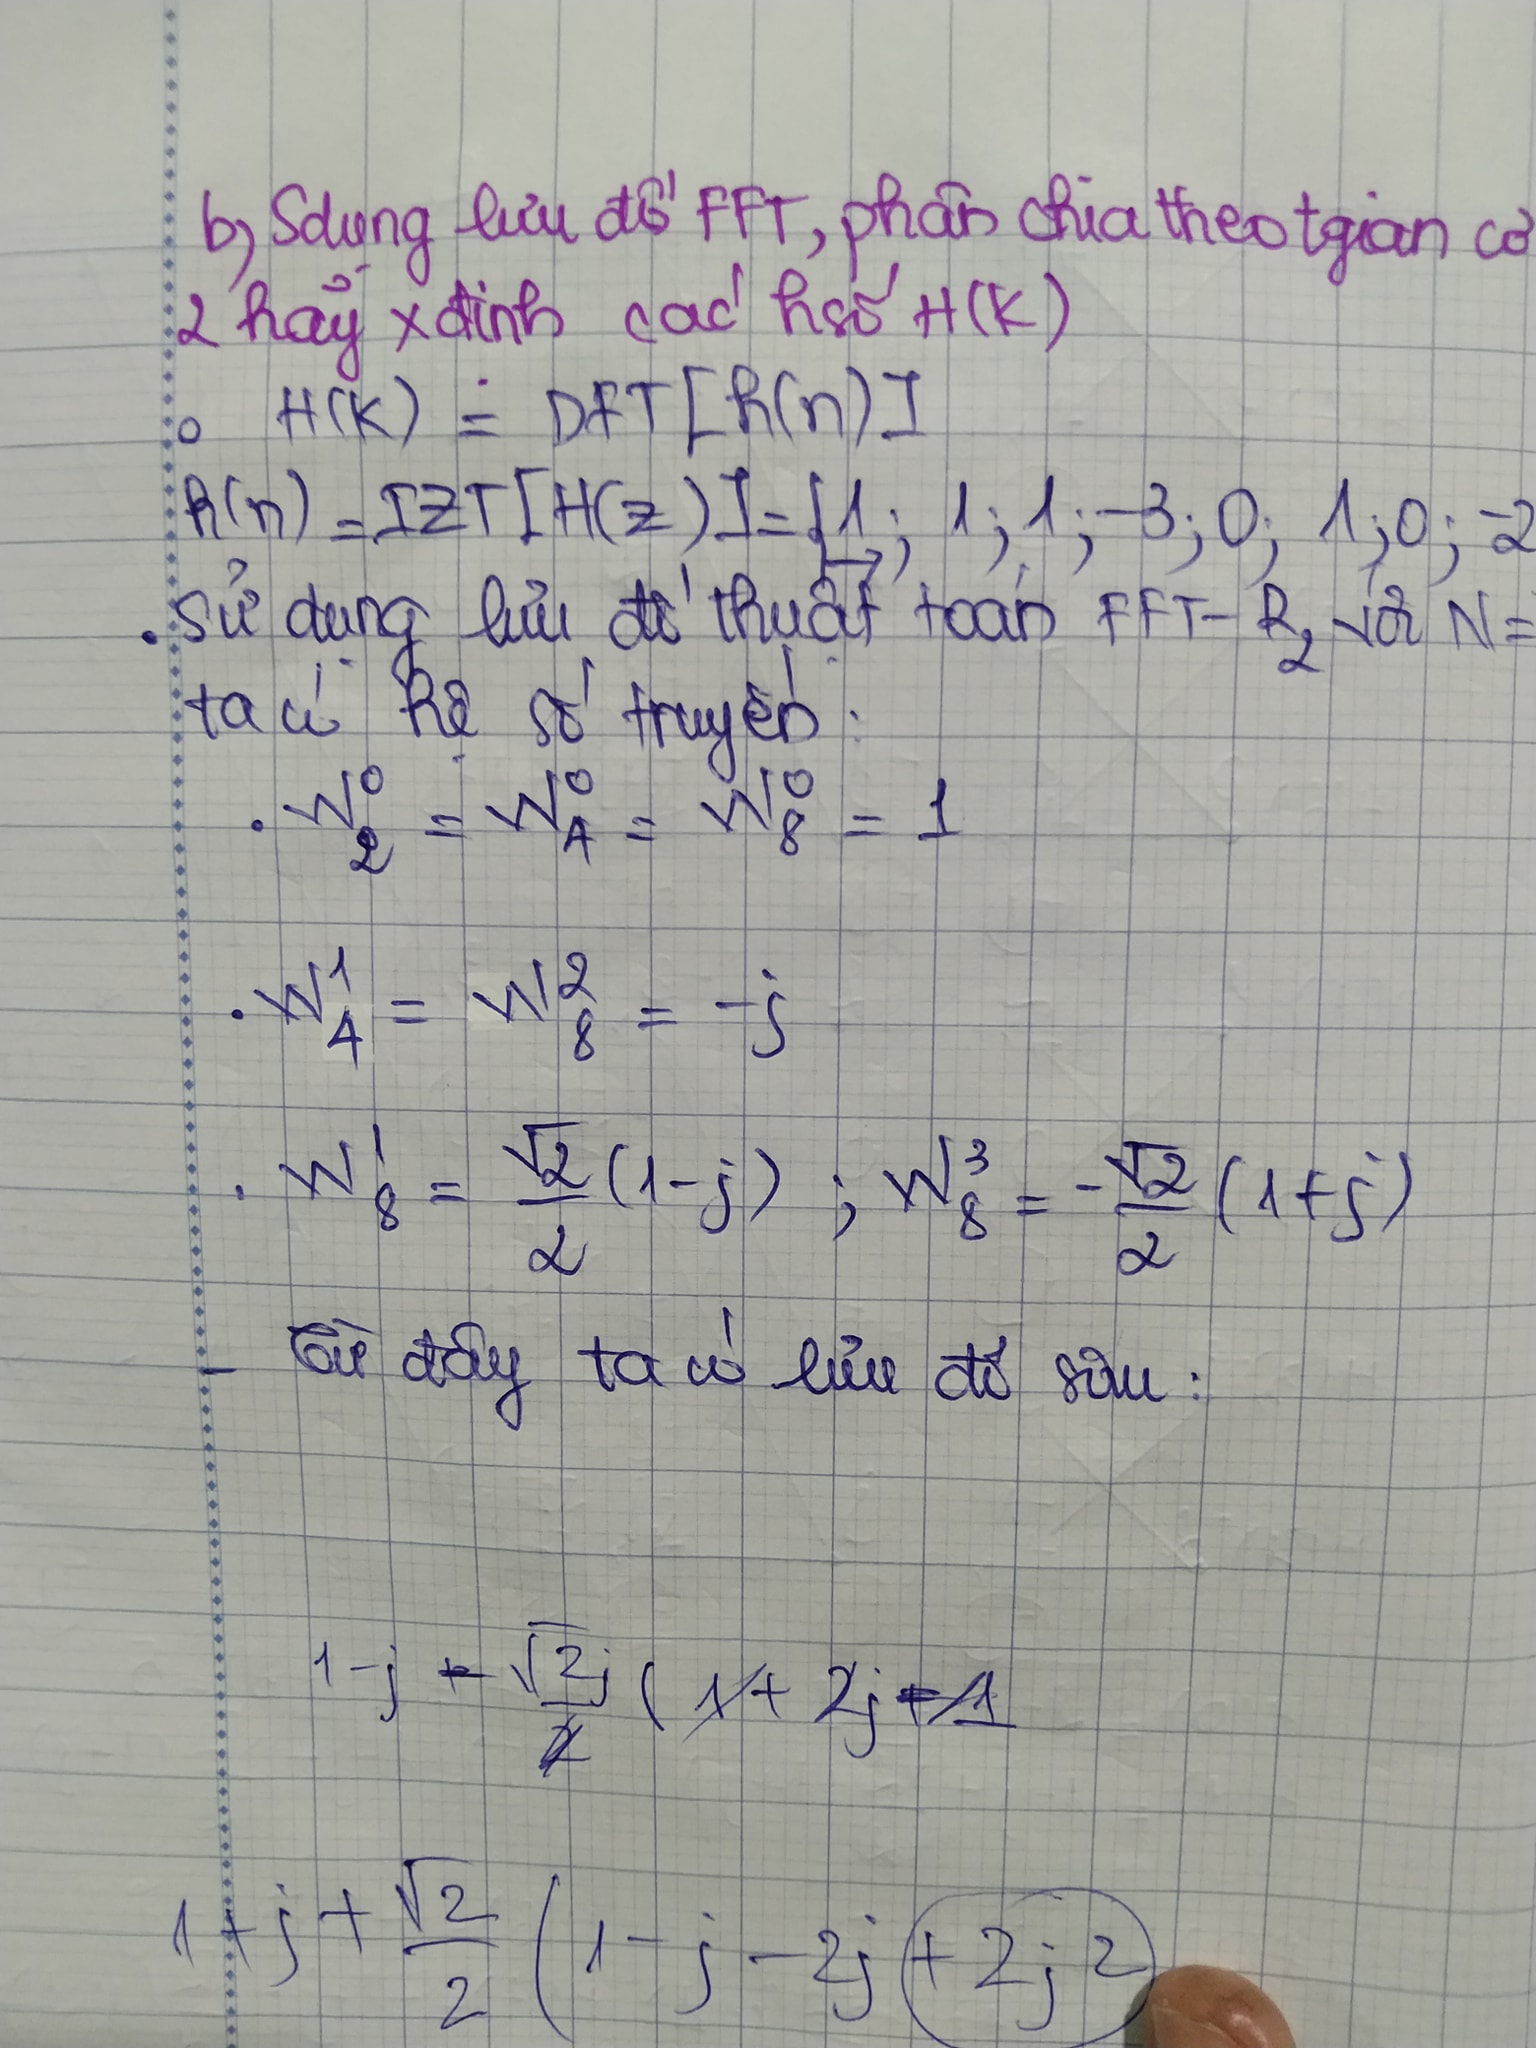 b, Sdụng lưu đồ FFT, phân chia theo tgian cơ
2 hãy xđịnh các hsố H(K)
o H(K) = DFT[h(n)]
h(n) = IZT[H(z)] = {1; 1; 1; -3; 0; 1; 0; -2
• sử dụng lưu đồ thuật toán FFT-R₂ với N=
ta có hệ số truyền:
• W₂⁰ = W₄⁰ = W₈⁰ = 1
• W₄¹ = W₈² = -j
• W₈¹ = √2/2 (1-j) ; W₈³ = -√2/2 (1+j)
- Từ đây ta có lưu đồ sau:
1-j - √2j/2 (1 + 2j - 1
1+j + √2/2 (1-j-2j+2j²